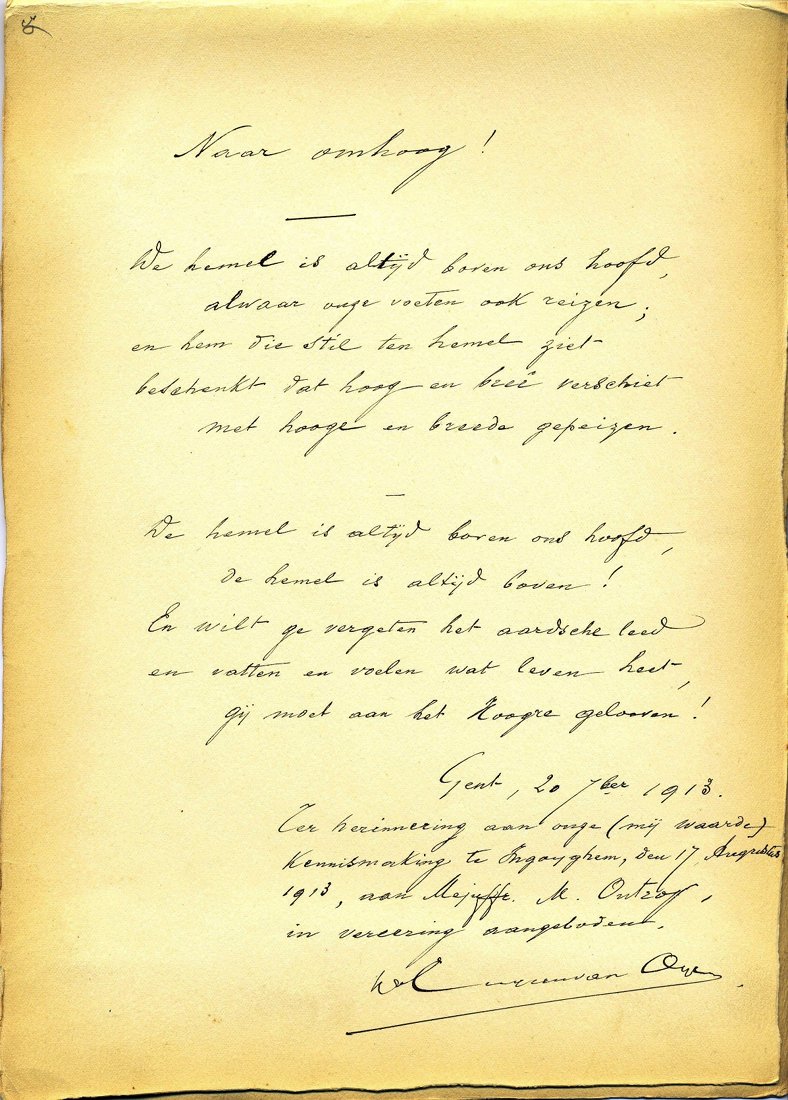 Naar omhoog!
De hemel is altijd boven ons hoofd,
alwaar onze voeten ook reizen;
en hem die stil ten hemel ziet
beschenkt dat hoog en breê verschiet
met hooge en breede gepeizen.
De hemel is altijd boven ons hoofd,
de hemel is altijd boven!
En wilt ge vergeten het aardsche leed
en vatten en voelen wat leven heet,
gij moet aan het Hoogre gelooven!
Gent, 20 7ber 1913.
Ter herinnering aan onze (mij waarde)
Kennismaking te Ingoyghem, den 17 Augustus
1913, aan Mejuffr. M.
in vereering aangeboden.
van Oye